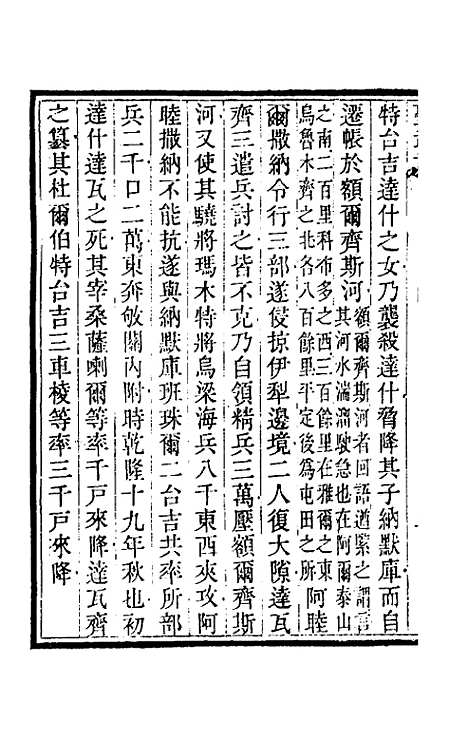 特台吉達什之女乃襲殺達什脅降其子納默庫而自
遷帳於額爾齊斯河額爾齊斯河者回語遒緊之謂言
其河水湍溜駛急也在阿爾泰山
之南二百里科布多之西三百餘里在雅爾之東
烏魯木齊之北各八百餘里平定後為屯田之所阿睦
爾撒納令行三部遂侵掠伊犁邊境二人復大隙達瓦
齊三遣兵討之皆不克乃自領精兵三萬壓額爾齊斯
河又使其驍將瑪木特將烏梁海兵八千東西夾攻阿
睦撒納不能抗遂與納默庫班珠爾二台吉共率所部
兵二千口二萬東奔敂關內附時乾隆十九年秋也初
達什達瓦之死其宰桑薩喇爾等率千戶來降達瓦齊
之篡其杜爾伯特台吉三車棱等率三千戶來降